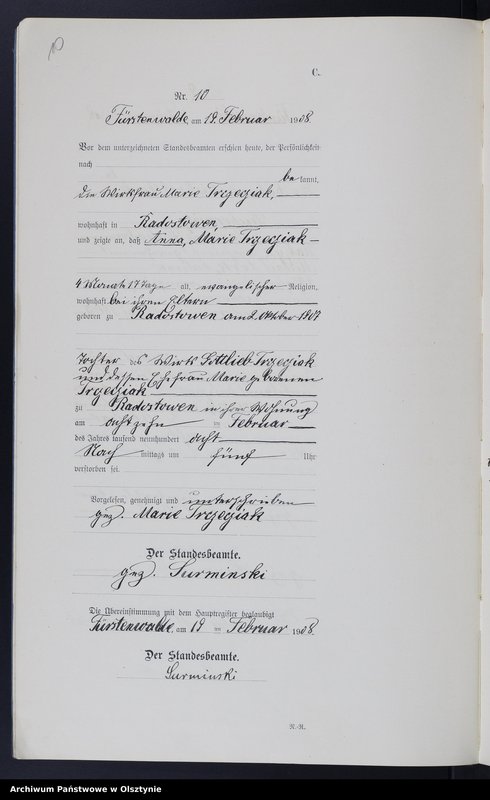 C.
Nr. 10
Fürstenwalde am 19. Februar 1908.
Vor dem unterzeichneten Standesbeamten erschien heute, der Persönlichkeit
nach
bekannt,
die Wirtsfrau Marie Trzeziak,
wohnhaft in Radostowen,
und zeigte an, daß Anna, Marie Trzeziak
4 Monate 17 Tage alt, evangelischer Religion,
wohnhaft bei ihren Eltern
geboren zu Radostowen am 2. Oktober 1907
Tochter des Wirts Gottlieb Trzeziak
und dessen Ehefrau Marie geborenen
Trzeziak
zu Radostowen in ihrer Wohnung
am achtzehn im Februar
des Jahres tausend neunhundert acht
Nach mittags um fünf Uhr
verstorben sei.
Vorgelesen, genehmigt und unterschrieben
gez. Marie Trzeziak
Der Standesbeamte.
gez. Surminski
Die Übereinstimmung mit dem Hauptregister beglaubigt
Fürstenwalde, am 19 im Februar 1908.
Der Standesbeamte.
Surminski
N.-R.
Archiwum Państwowe w Olsztynie